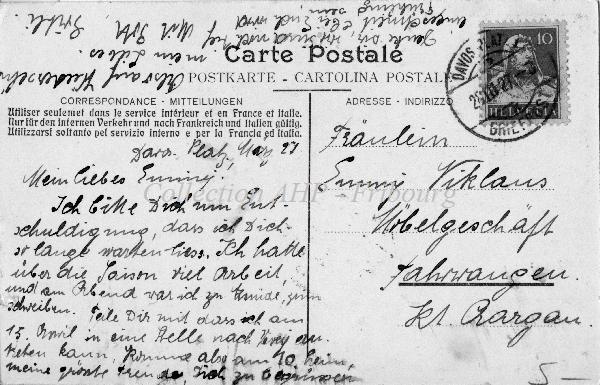 Carte Postale
POSTKARTE - CARTOLINA POSTALE
CORRESPONDANCE - MITTEILUNGEN
ADRESSE - INDIRIZZO
Utiliser seulement dans le service intérieur et en France et Italie.
Nur für den internen Verkehr und nach Frankreich und Italien gültig.
Utilizzarsi soltanto pel servizio interno e per la Francia ed Italia.
Davos Platz
Mein liebes Emmy.
Ich bitte Dich um Ent-
schuldigung, dass ich Dich
so lange warten liess. Ich hatte
über die Saison viel Arbeit,
und am Abend war ich zu müde, zum
schreiben. Teile Dir mit dass ich am
15. April in eine Stelle nach
treten kann, komme also am 10. heim,
meine grösste Freude, Dich zu begrüssen
Also auf Wiedersehn
mein Liebes
Fräulein
Emmy Niklaus
Möbelgeschäft
Fahrwangen.
Kt Aargau.
DAVOS PLATZ
10
HELVETIA
Collection AHP - Fribourg
5-